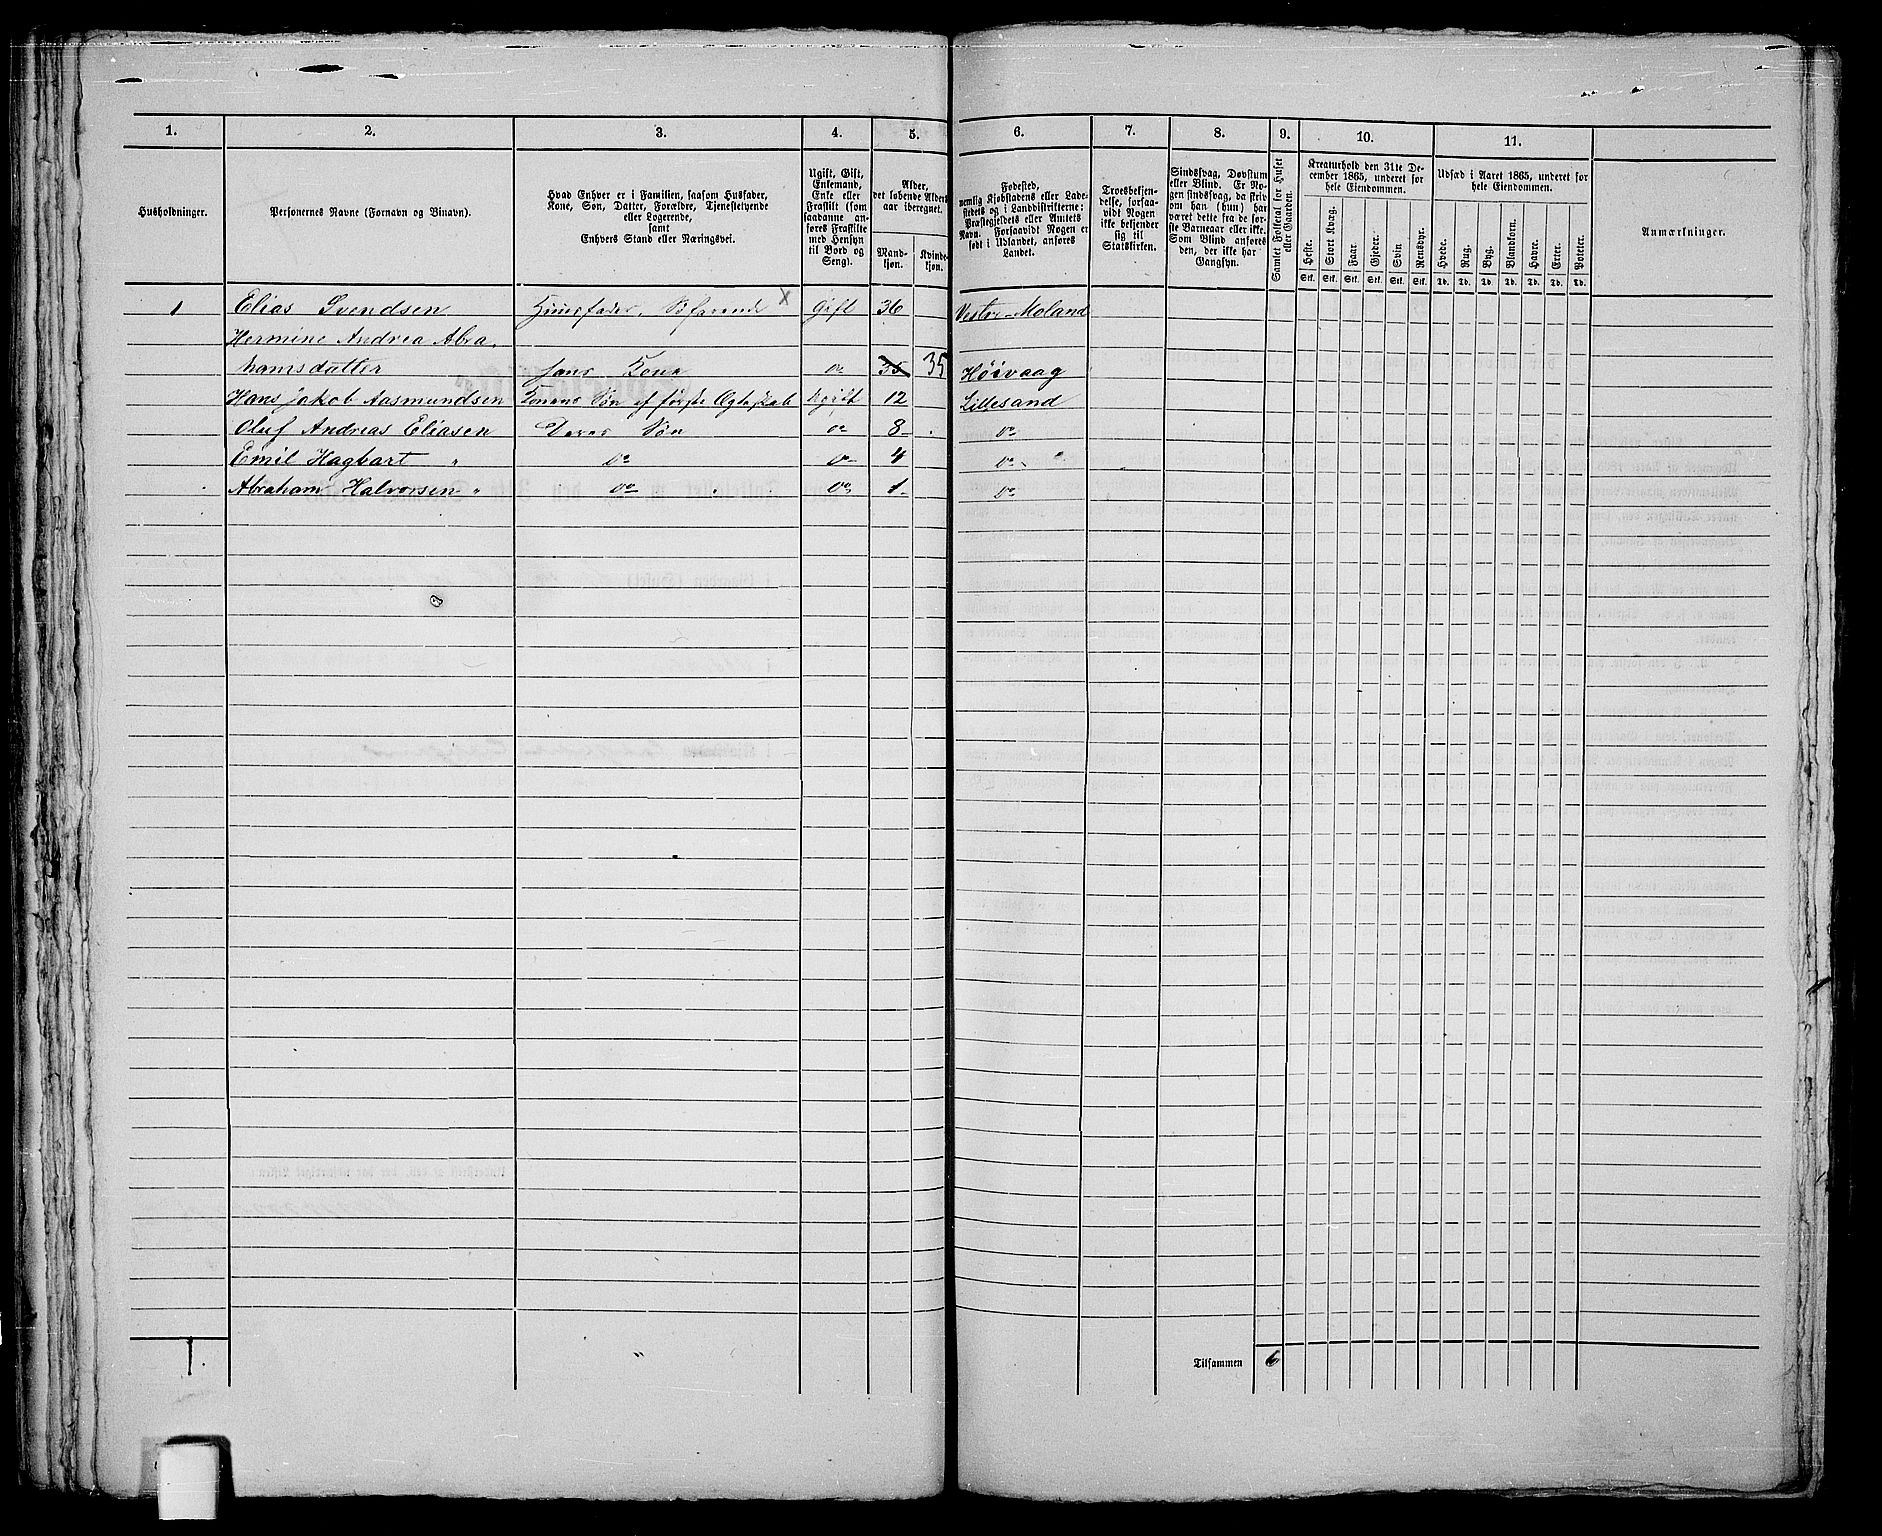 1. 2. 3. 4. 5. 6. 7. 8. 9. 10. 11.
Husholdninger.
Personernes Navne (Fornavn og Binavn).
Hvad Enhver er i Familien, saasom Husfader,
Kone, Søn, Datter, Forældre, Tjenestetyende
eller Logerende,
samt
Enhvers Stand eller Næringsvei.
Ugift, Gift,
Enkemand,
Enke eller
Fraskilt (som
saadanne an-
føres Fraskilte
med Hensyn
til Bord og
Seng).
Alder,
det løbende Alders-
aar iberegnet.
Mand-
kjøn.
Kvinde-
kjøn.
Fødested,
nemlig Kjøbstadens eller Lade-
stedets og i Landdistrikterne:
Præstegjeldets eller Amtets
Navn. Forsaavidt Nogen er
født i Udlandet, anføres
Landet.
Troesbekjen-
delse, forsaa-
vidt Nogen
ikke bekjender
sig til
Statskirken.
Sindssvag, Døvstum
eller Blind. Er No-
gen sindssvag, da skriv
om han (hun) har
været dette fra de før-
ste Barneaar eller ikke.
Som Blind anføres
den, der ikke har
Gangsyn.
Samlet Folketal for Huset
eller Gaarden.
Kreaturhold den 31te De-
cember 1865, underet for
hele Eiendommen.
Heste. Stort Kvæg. Faar. Gjeder. Svin Rensdyr.
Stk. Stk. Stk. Stk. Stk. Stk.
Udsæd i Aaret 1865, underet for
hele Eiendommen.
Hvede. Rug. Byg. Blandkorn. Havre. Erter. Poteter.
Td. Td. Td. Td. Td. Td. Td.
Anmærkninger.
1 Elias Svendsen Huusfader, Søfarende x Gift 36 Vestre-Moland
Hermine Andrea Abra-
hamsdatter hans Kone do 35 35 Høivaag
Hans Jakob Aasmundsen Konens Søn af første Ægteskab Ugift 12 Lillesand
Oluf Andreas Eliasen Deres Søn do 8 do
Emil Hagbart " do do 4 do
Abraham Halvorsen " do do 1 do
1.
Tilsammen 6